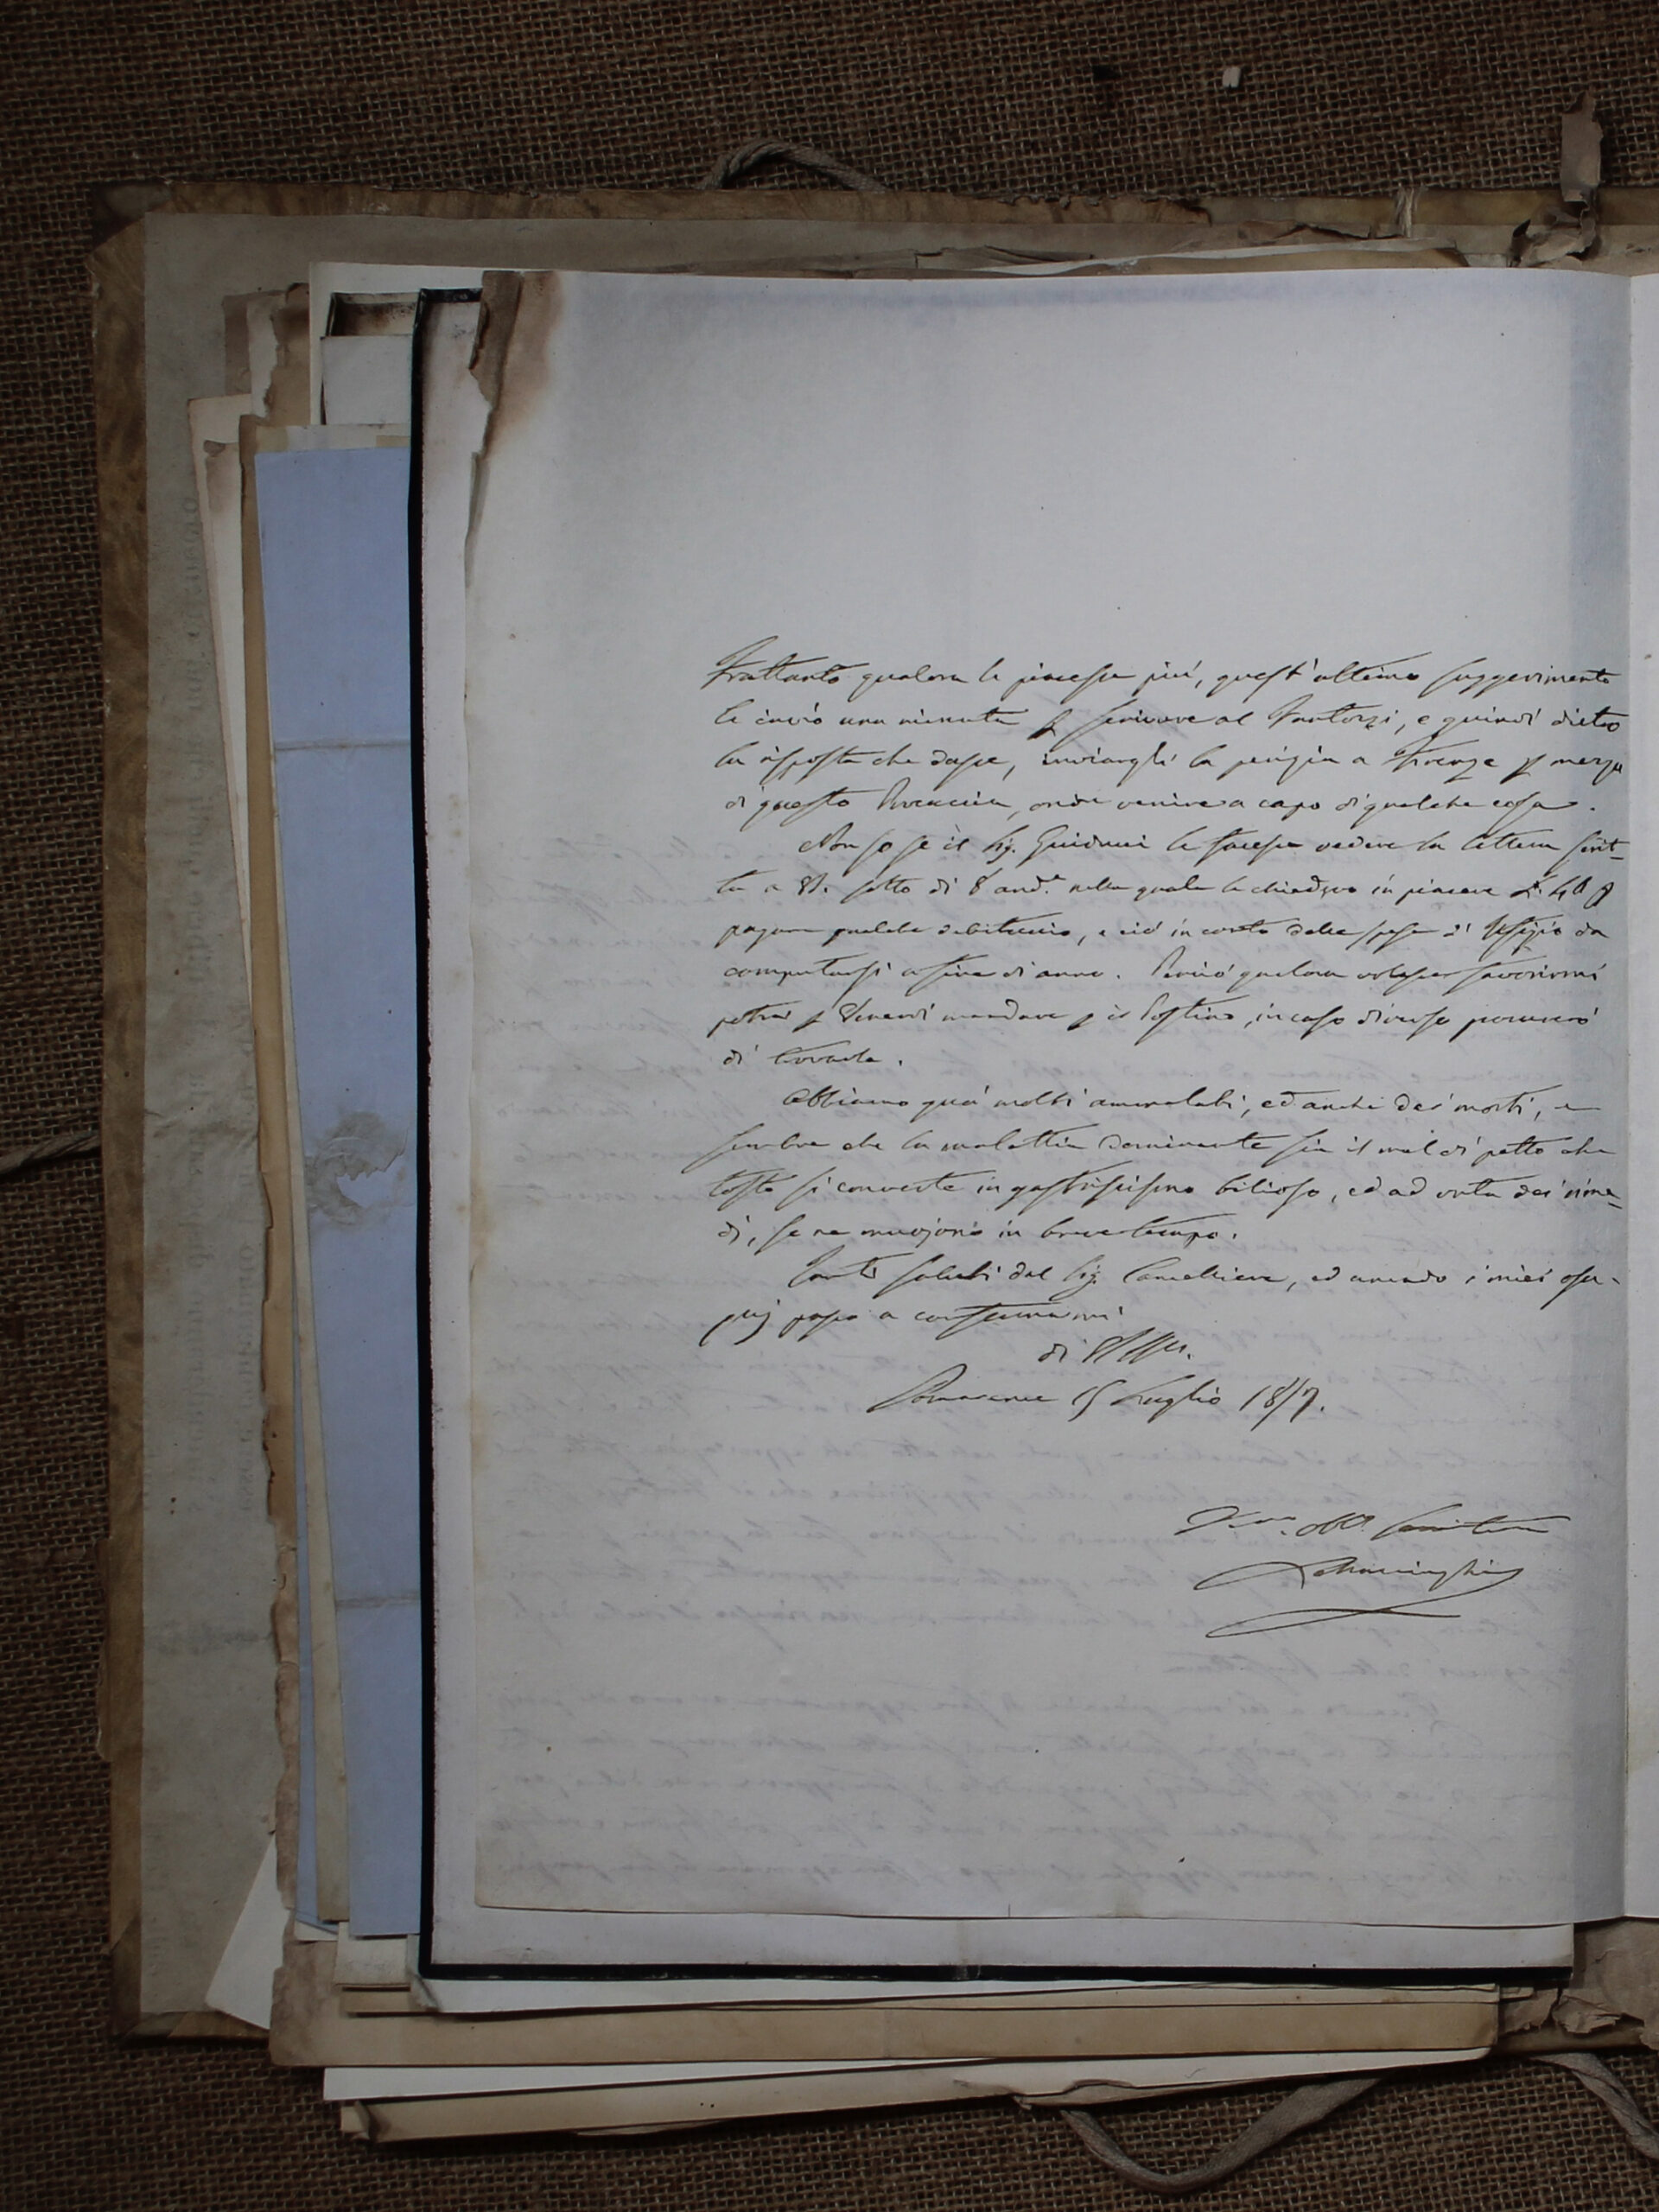 Frattanto qualora le piacesse più, quest'ultimo suggerimento
le invio una minuta p scrivere al Fantozzi, e quindi dietro
la risposta che dasse, inviargli la perizia a Firenze p mezzo
di questo Procaccia, onde venire a capo di qualche cosa.
Non so se il Sig. Guiducci le facesse vedere la lettera scrit-
ta a VS. sotto di 8 and.e nella quale le chiedevo in piacere L. 40 p
pagare qualche debituccio, e ciò in conto delle spese d'Ufizio da
computarsi a fine di anno. Perciò qualora volesse favorirmi
potrà p Venerdì mandare p il Postino, in caso diverso procurerò
di trovarle.
Abbiamo quà molti ammalati, ed anche dei morti, e
sembra che la malattia dominante sia il mal di petto che
tosto si converte in gastricismo bilioso, ed ad onta dei rime-
di, se ne muojono in breve tempo.
Tanti saluti dal Sig. Cancelliere, ed unendo i miei osse-
quj passo a confermarmi
di VS
Pomarance 15 Luglio